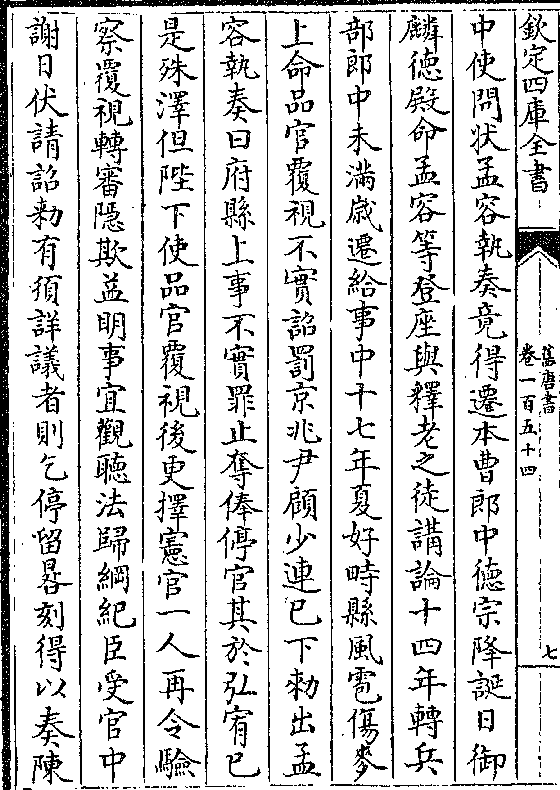 欽定四庫全書
舊唐書
卷一百五十四
七
中使問状孟容執奏竟得遷本曹郎中德宗降誕日御
麟德殿命孟容等登座與釋老之徒講論十四年轉兵
部郎中未滿歲遷給事中十七年夏好畤縣風雹傷麥
上命品官覆視不實詔罰京兆尹顧少連已下勅出孟
容執奏曰府縣上事不實罪止奪俸停官其於弘宥已
是殊澤但陛下使品官覆視後更擇憲官一人再令驗
察覆視轉審隱欺益明事宜觀聽法歸綱紀臣受官中
謝日伏請詔勅有須詳議者則乞停留晷刻得以奏陳